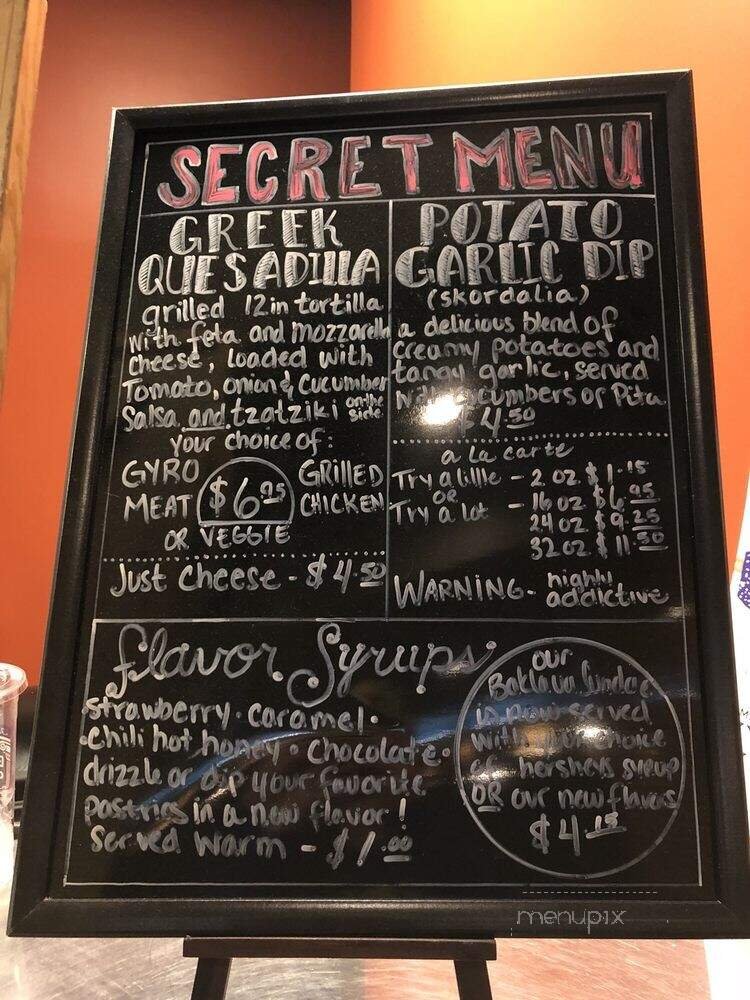 SECRET MENU
GREEK
QUESADILLA
grilled 12in tortilla
with feta and mozzarella
cheese, loaded with
Tomato, onion & cucumber
Salsa and tzatziki on the side
your choice of:
GYRO
MEAT
$6.95
GRILLED
CHICKEN
OR VEGGIE
Just Cheese - $4.50
POTATO
GARLIC DIP
(skordalia)
a delicious blend of
creamy potatoes and
tangy garlic, served
with cucumbers or Pita
$4.50
a la carte
Try a little - 2 oz $1.15
OR
Try a lot - 16 oz $6.95
24 oz $9.25
32 oz $11.50
WARNING - highly
addictive
flavor Syrups
strawberry · caramel ·
chili hot honey · chocolate ·
drizzle or dip your favorite
pastries in a new flavor!
Served warm - $1.00
our
Baklava Sundae
is now served
with your choice
of hersheys syrup
OR our new flavors
$4.15
menupix